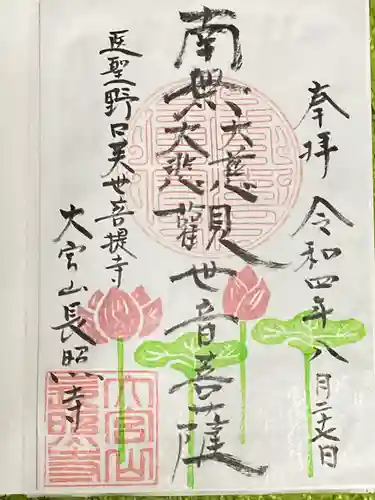 奉拝 令和四年八月二十七日
南無大慈大悲観世音菩薩
医聖野口英世菩提寺
大宮山長照寺
大宮山
長照寺